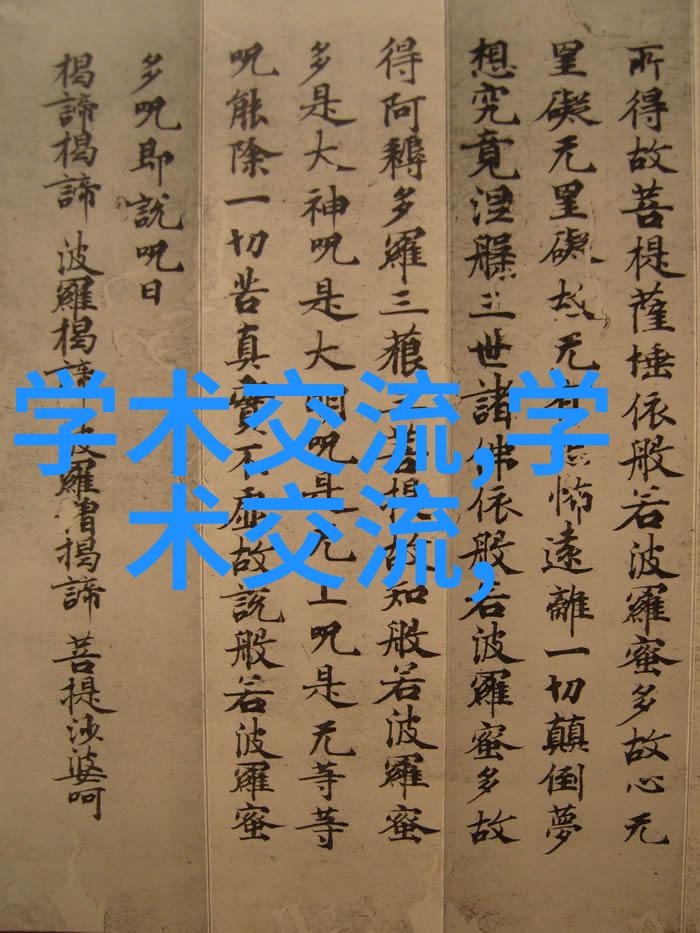 所得故菩提薩埵依般若波羅蜜多故心无
罣礙无罣礙故无有恐怖遠離一切顛倒夢
想究竟涅槃三世諸佛依般若波羅蜜多故
得阿耨多羅三藐三菩提故知般若波羅蜜
多是大神呪是大明呪是无上呪是无等等
呪能除一切苦真實不虛故說般若波羅蜜
多呪即說呪曰
揭諦揭諦 波羅揭諦 波羅僧揭諦 菩提沙婆呵
学术交流,学
术交流,